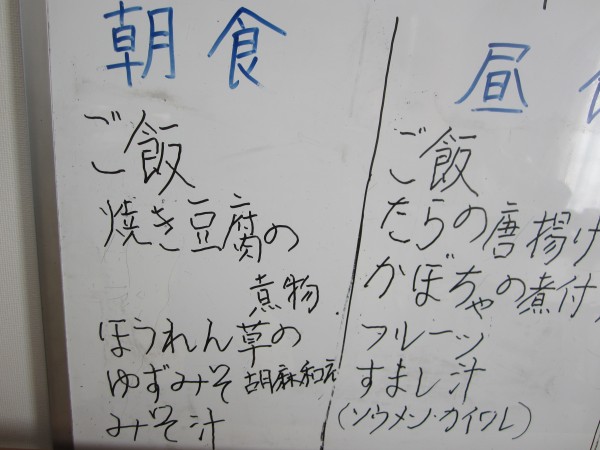 朝食
ご飯
焼き豆腐の
煮物
ほうれん草の
ゆずみそ胡麻和え
みそ汁
昼食
ご飯
たらの唐揚げ
かぼちゃの煮付
フルーツ
すまし汁
(ソウメン・カイワレ)